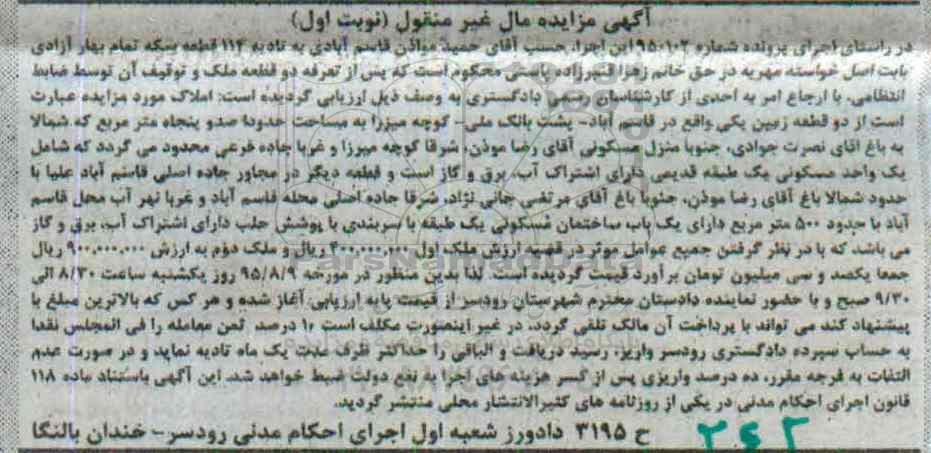 آگهی مزایده مال غیر منقول (نوبت اول)
در راستای اجرای پرونده شماره ۹۵۰۱۰۲ این اجرا، حسب آقای حمید مواذن قاسم آبادی به تادیه ۱۱۴ قطعه سکه تمام بهار آزادی
بابت اصل خواسته مهریه در حق خانم زهرا قنبرزاده پاستی محکوم است که پس از تعرفه دو قطعه ملک و توقیف آن توسط ضابط
انتظامی، با ارجاع امر به احدی از کارشناسان رسمی دادگستری به وصف ذیل ارزیابی گردیده است: املاک مورد مزایده عبارت
است از دو قطعه زمین یکی واقع در قاسم آباد - پشت بانک ملی - کوچه میرزا به مساحت حدودا صدو پنجاه متر مربع که شمالا
به باغ اقای نصرت جوادی، جنوبا منزل مسکونی آقای رضا موذن، شرقا کوچه میرزا و غربا جاده فرعی محدود می گردد که شامل
یک واحد مسکونی یک طبقه قدیمی دارای اشتراک آب، برق و گاز است و قطعه دیگر در مجاور جاده اصلی قاسم آباد علیا با
حدود شمالا باغ آقای رضا موذن، جنوبا باغ آقای مرتضی جانی نژاد، شرقا جاده اصلی محله قاسم آباد و غربا نهر آب محل قاسم
آباد با حدود ۵۰۰ متر مربع دارای یک باب ساختمان مسکونی یک طبقه با سربندی با پوشش حلب دارای اشتراک آب، برق و گاز
می باشد که با در نظر گرفتن جمیع عوامل موثر در قضیه ارزش ملک اول ۴۰۰,۰۰۰,۰۰۰ ریال و ملک دوم به ارزش ۹۰۰,۰۰۰,۰۰۰ ریال
جمعا یکصد و سی میلیون تومان برآورد قیمت گردیده است. لذا بدین منظور در مورخه ۹۵/۸/۹ روز یکشنبه ساعت ۸/۳۰ الی
۹/۳۰ صبح و با حضور نماینده دادستان محترم شهرستان رودسر از قیمت پایه ارزیابی آغاز شده و هر کس که بالاترین مبلغ با
پیشنهاد کند می تواند با پرداخت آن مالک تلقی گردد، در غیر اینصورت مکلف است ۱۰ درصد ثمن معامله را فی المجلس نقدا
به حساب سپرده دادگستری رودسر واریز، رسید دریافت و الباقی را حداکثر ظرف مدت یک ماه تادیه نماید و در صورت عدم
التفات به فرجه مقرر، ده درصد واریزی پس از کسر هزینه های اجرا به نفع دولت ضبط خواهد شد. این آگهی باستناد ماده ۱۱۸
قانون اجرای احکام مدنی در یکی از روزنامه های کثیرالانتشار محلی منتشر گردید.
ح ۳۱۹۵ دادورز شعبه اول اجرای احکام مدنی رودسر - خندان بالنگا
۲۶۲
ParsNamadData